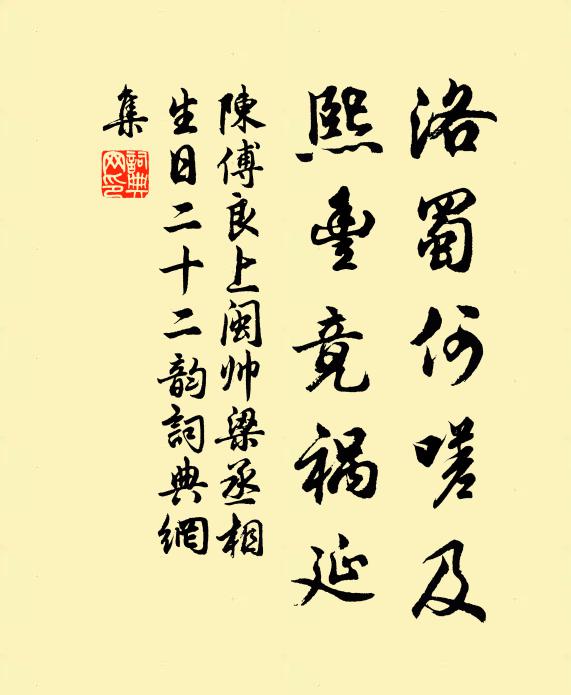 洛蜀何嗟及
熙豐竟祸延
陳傅良上闽帅梁丞相
生日二十二韵詞典網
集
詞典网印